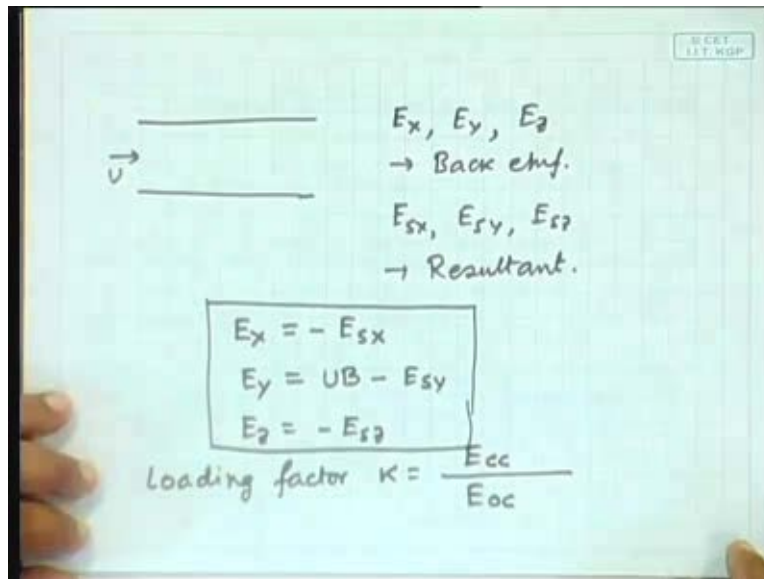 © CET
I.I.T. KGP
Ex, Ey, Ez
→ Back emf.
U
Esx, Esy, Esz
→ Resultant.
Ex = - Esx
Ey = UB - Esy
Ez = - Esz
Loading factor K = Ecc / Eoc